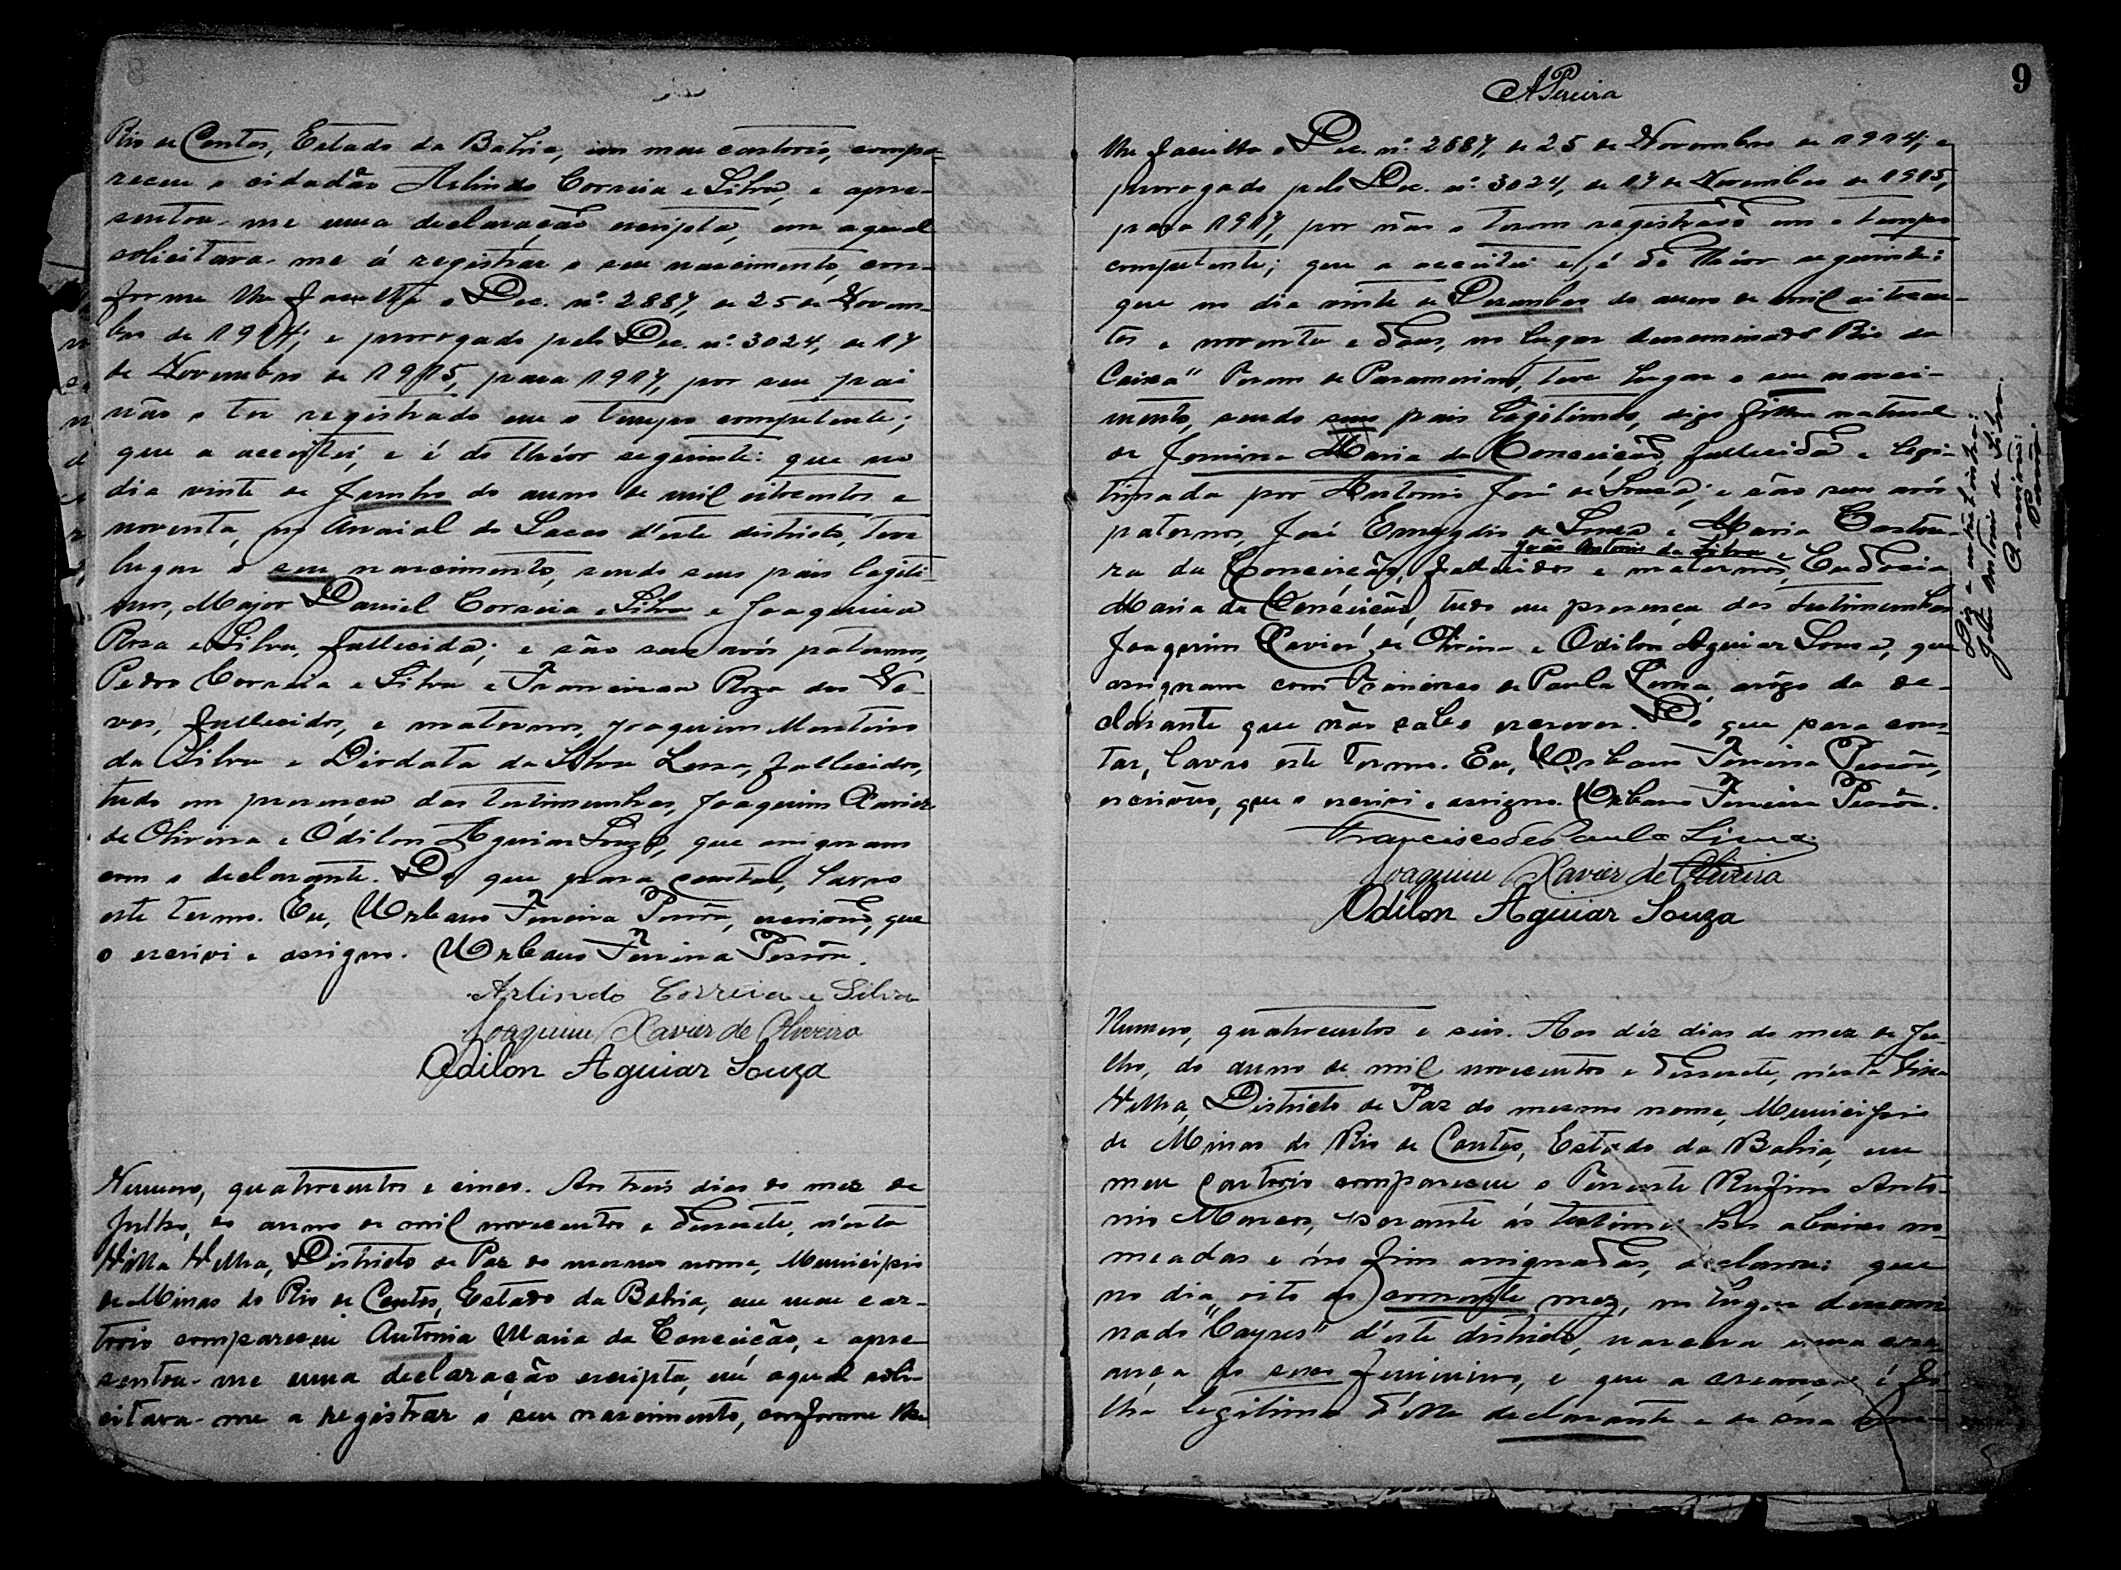 Rio de Contas, Estado da Bahia, em meu cartorio, compa-
receu o cidadão Arlindo Correia e Silva, e apre-
sentou-me uma declaração escripta, em a qual
solicitava-me á registrar o seu nascimento, con-
forme lhe faculta o Dec. nº. 2887, de 25 de Novem-
bro de 1914; e prorogado pelo Dec. nº. 3024, de 17
de Novembro de 1915, para 1917, por seu pai
não o ter registrado em o tempo competente;
que a acceitei, e é do theór seguinte: que no
dia vinte de Junho do anno de mil oitocentos e
noventa, no Arraial do       d'este districto, teve
lugar o seu nascimento, sendo seus pais legiti-
mos, Major Daniel Correia e Silva e Joaquina
Rosa e Silva, fallecida; e são seus avós paternos,
Pedro Correia e Silva e Francisca Roza das Ne-
ves, fallecidos, e maternos, Joaquim Monteiro
da Silva e Deodata da Silva       fallecidos,
tudo em presença das testimunhas, Joaquim Xavier
de Oliveira e Odilon Aguiar Souza, que assignam
com o declarante. Do que para constar, lavro
este termo. Eu, Urbano Ferreira Pessôa, escrivão, que
o escrivi e assigno. Urbano Ferreira Pessôa.
Arlindo Correia e Silva
Joaquim Xavier de Oliveira
Odilon Aguiar Souza
Numero, quatrocentos e cinco. Aos treis dias do mez de
Julho, do anno de mil novecentos e dessecete, n'esta
Villa Velha, Districto de Paz do mesmo nome, Municipio
de Minas do Rio de Contas, Estado da Bahia, em meu car-
torio compareceu Antonia Maria da Conceição, e apre-
sentou-me uma declaração escripta, em a qual soli-
citava-me a registrar o seu nascimento, conforme lhe
APereira
9
lhe faculta o Dec. nº. 2887, de 25 de Novembro de 1914; e
prorogado pelo Dec. nº. 3024, de 17 de Novembro de 1915,
para 1917, por não o terem registrado em o tempo
competente; que a acceitei e, é do theór seguinte:
que no dia vinte de Dezembro do anno de mil oitocen-
tos e noventa e dous, no lugar denominado Rio da
Caixa" Termo de Paramerim, teve lugar o seu nasci-
mento, sendo seus pais legitimos, digo filha natural
de       Maria da Conceição, fallecida e legi-
timada por Antonio José de Souza; e são seus avós
paternos, José Emygdio de Souza e Maria
ra da Conceição, fallecidos e maternos, Eudocia
João Antonio da Silva e
Maria da Conceição, tudo em presença das testimunhas
Joaquim Xavier de Oliveira e Odilon Aguiar Souza, que
assignam com Francisco de Paula Lima, a rógo da de-
clarante que não sabe escrever. Do que para cons-
tar, lavro este termo. Eu, Urbano Ferreira Pessôa,
escrivão, que o escrivi e assigno. Urbano Ferreira Pessôa.
Francisco de Paula Lima
Joaquim Xavier de Oliveira
Odilon Aguiar Souza
Diz a entrelinha:
João Antonio da Silva.
O escrivão:
Pessôa.
Numero, quatrocentos e seis. Aos déz dias do mez de Ju-
lho, do anno de mil novecentos e dessecete, n'esta Villa
Velha, Districto de Paz do mesmo nome, Municipio
de Minas do Rio de Contas, Estado da Bahia, em
meu cartorio compareceu o Tenente Rufino Anto-
nio       perante ás testimunhas abaixo no-
meadas e no fim assignadas, declarou: que
no dia oito do corrente mez, no lugar denomi-
nado "Cayres" d'este districto, nascera uma cre-
ança do sexo feminino, e que a creança é fi-
lha legitima d'elle declarante e de sua